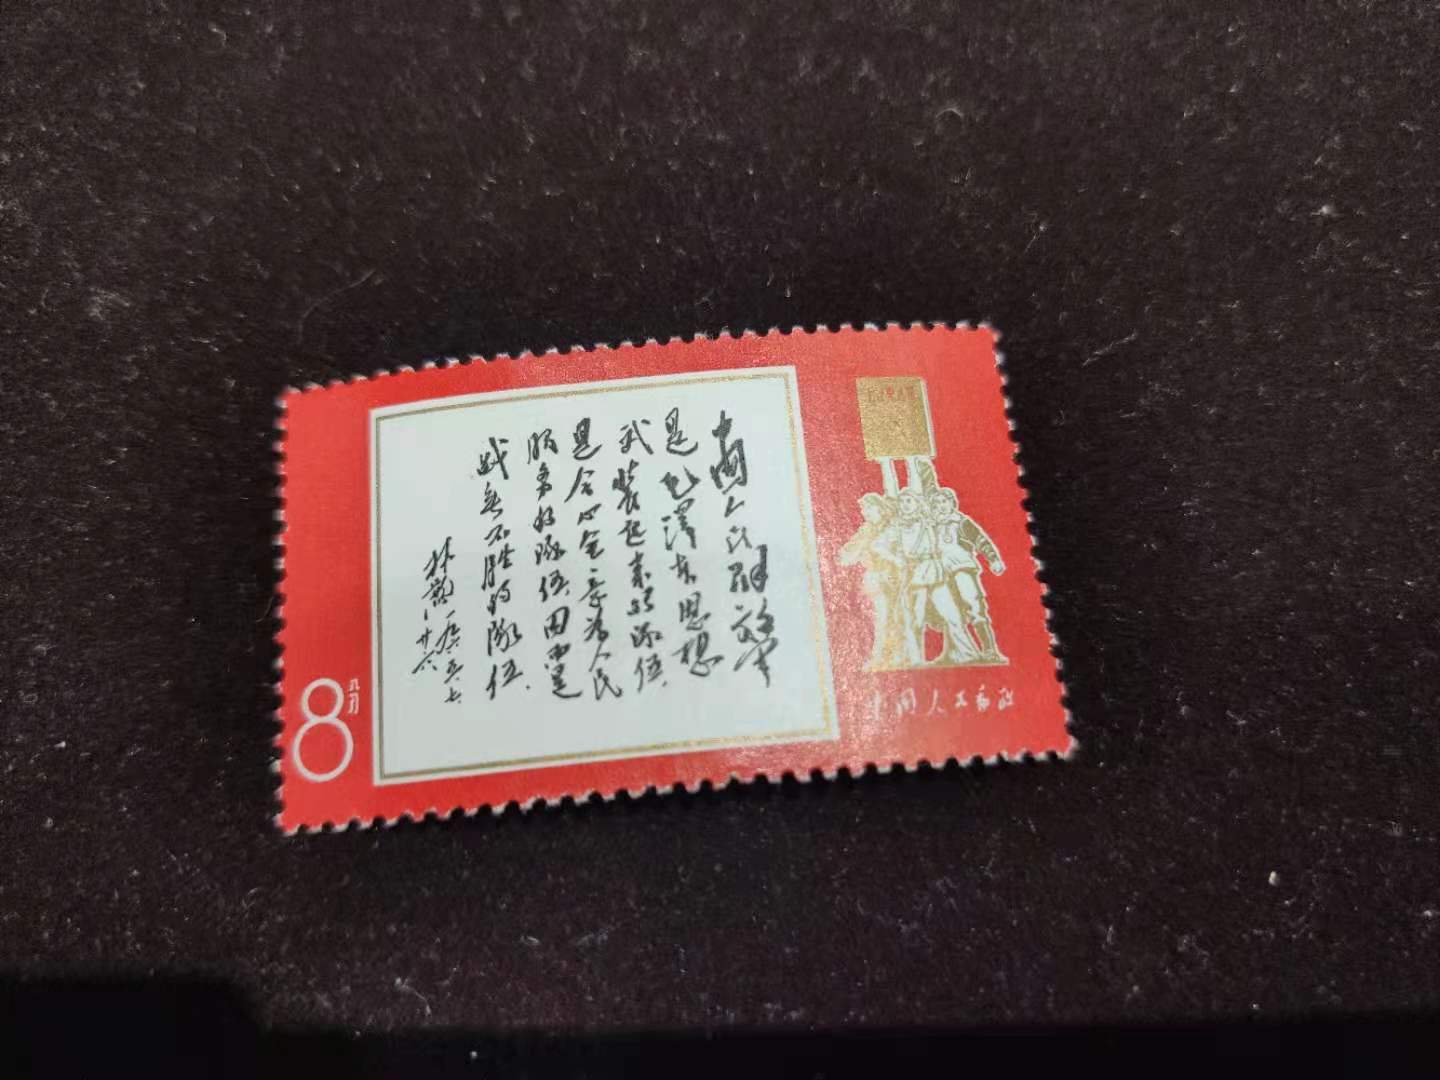 中國人民解放军
是毛澤东思想
武装起来的队伍,
是全心全意为人民
服务的队伍,因而是
战无不胜的队伍.
林彪
一九六五.七、
廿六
8
八分
中国人民邮政